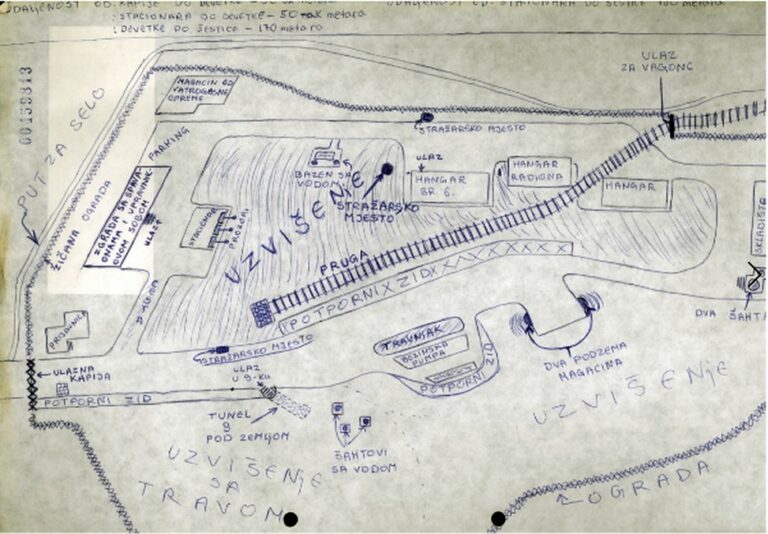 UDALJENOST OD KAPIJE DO DEVETKE
UDALJENOST OD STACIONARA DO ŠESTKE 100 metara
: STACIONARA DO DEVETKE – 50 metara
: DEVETKE DO ŠESTICE – 170 metara
00459813
PUT ZA SELO
ŽIČANA OGRADA
MAGACIN OD
VATROGASNE
OPREME
PARKING
ULAZ
ZA VAGONE
STRAŽARSKO MJESTO
BAZEN SA
VODOM
STRAŽARSKO
MJESTO
ULAZ
HANGAR
BR 6.
HANGAR
RADIONA
HANGAR
SKLADIŠTE
ZGRADA SA SPAVA
ONAMA I UPRAVNIK
OVOM SOBOM
ULAZI
STACIONAR
PROZORI
UZVIŠENJE
PRUGA
POTPORNI ZID
DVA ŠAHTA
PRIJAVNICA
STRAŽARSKO MJESTO
TRAVNJAK
BENZINSKA
PUMPA
POTPORNI ZID
DVA PODZEMA
MAGACINA
ULAZNA
KAPIJA
POTPORNI ZID
ULAZ
U 9-KU
TUNEL
9
POD ZEMLJOM
ŠAHTOVI
SA VODOM
UZVIŠENJE
UZVIŠENJE
SA
TRAVOM
OGRADA